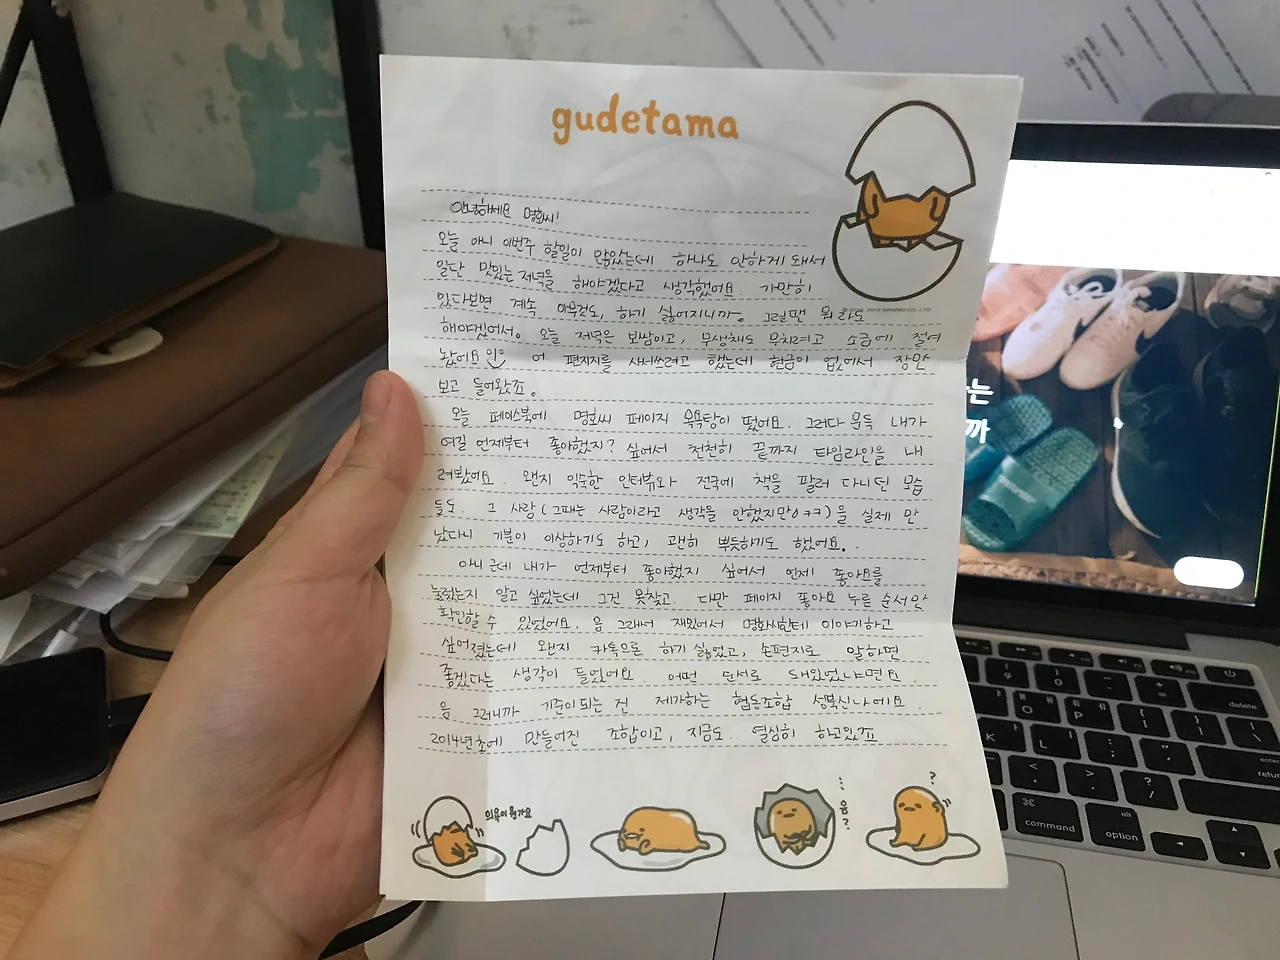 gudetama
안녕하세요 명화씨!
오늘 아니 이번주 할일이 많았는데 하나도 안하게 돼서
일단 맛있는 저녁을 해야겠다고 생각했어요 가만히
있다보면 계속 아무것도, 하기 싫어지니까. 그럴땐 뭐라도
해야겠어서. 오늘 저녁은 보쌈이고, 무생채도 무치려고 소금에 절여
놨어요 어. 편지지를 사서쓰려고 했는데 현금이 없어서 장만
보고 들어왔죠.
오늘 페이스북에 명화씨 페이지 목욕탕이 떴어요. 그러다 문득 내가
여길 언제부터 좋아했지? 싶어서 천천히 끝까지 타임라인을 내
려봤어요. 왠지 익숙한 인터뷰와 전국에 책을 팔러 다니던 모습
들도. 그 사람(그때는 사람이라고 생각을 안했지만ㅋㅋ)을 실제 만
났다니 기분이 이상하기도 하고, 괜히 뿌듯하기도 했어요.
아니 근데 내가 언제부터 좋아했지 싶어서 언제 좋아요를
눌렀는지 알고 싶었는데 그건 못찾고. 다만 페이지 좋아요 누른 순서만
확인할 수 있었어요. 음 그래서 재밌어서 명화씨한테 이야기하고
싶어졌는데 왠지 카톡으론 하기 싫었고, 손편지로 말하면
좋겠다는 생각이 들었어요. 어떤 순서로 돼있었냐면요
음 그러니까 기준이 되는 건 제가하는 협동조합 성북신나에요.
2014년초에 만들어진 조합이고, 지금도 열심히 하고있죠
의욕이 뭔가요
음?
?
는
까
command
option
alt
delete
enter
return